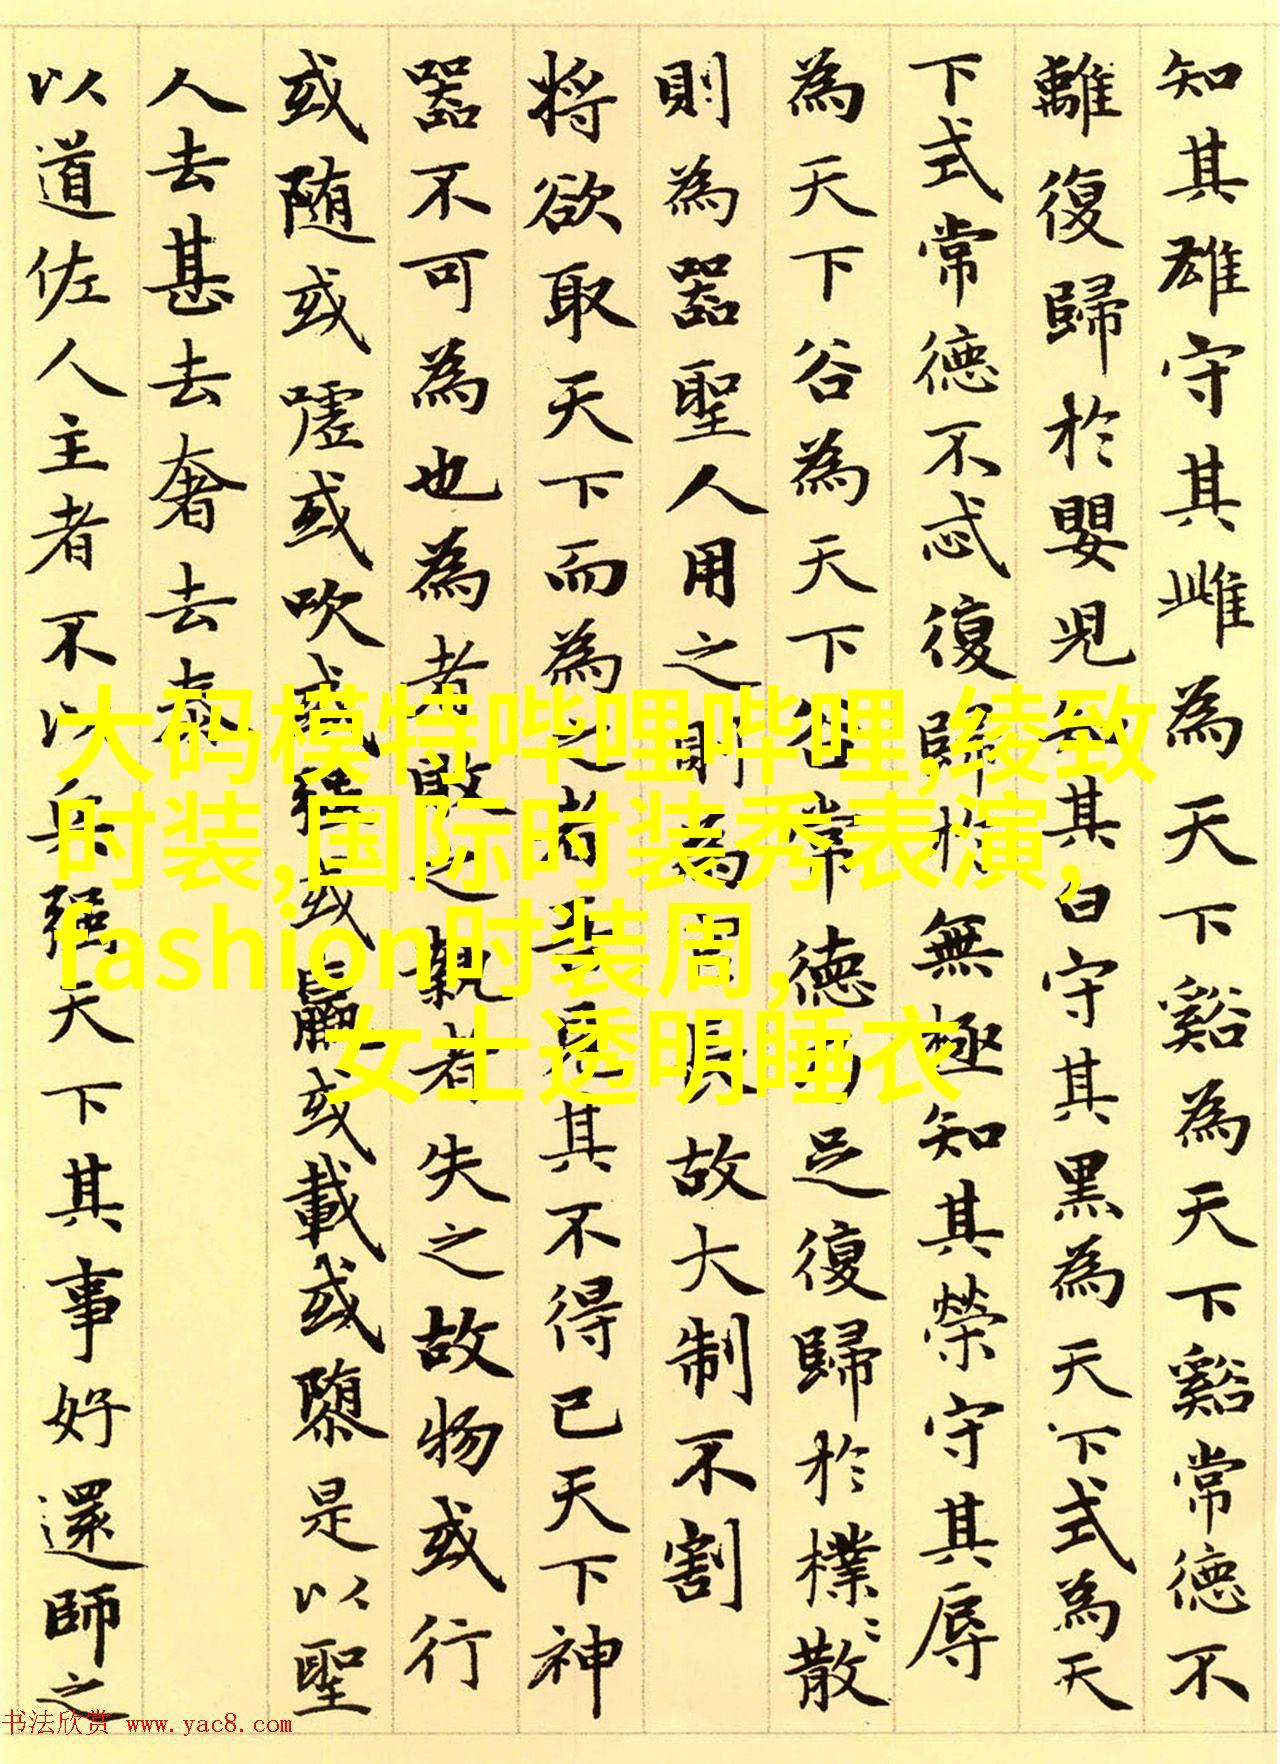 知其雄守其雌為天下谿為天下谿常德不
離復歸於嬰兒知其白守其黑為天下式為天
下式常德不忒復歸於無極知其榮守其辱
為天下谷為天下谷常德乃足復歸於樸〻散
則為器聖人用之則為官長故大制不割
将欲取天下而為之者吾見其不得已天下神
器不可為也為者敗之執者失之故物或行
或随或嘘或吹或強或羸或載或隳是以聖
人去甚去奢去泰
以道佐人主者不以兵强天下其事好還師之
大码模特哔哩哔哩,绫致
时装,国际时装秀表演,
fashion时装周,
女士透明睡衣
书法欣赏 www.yac8.com